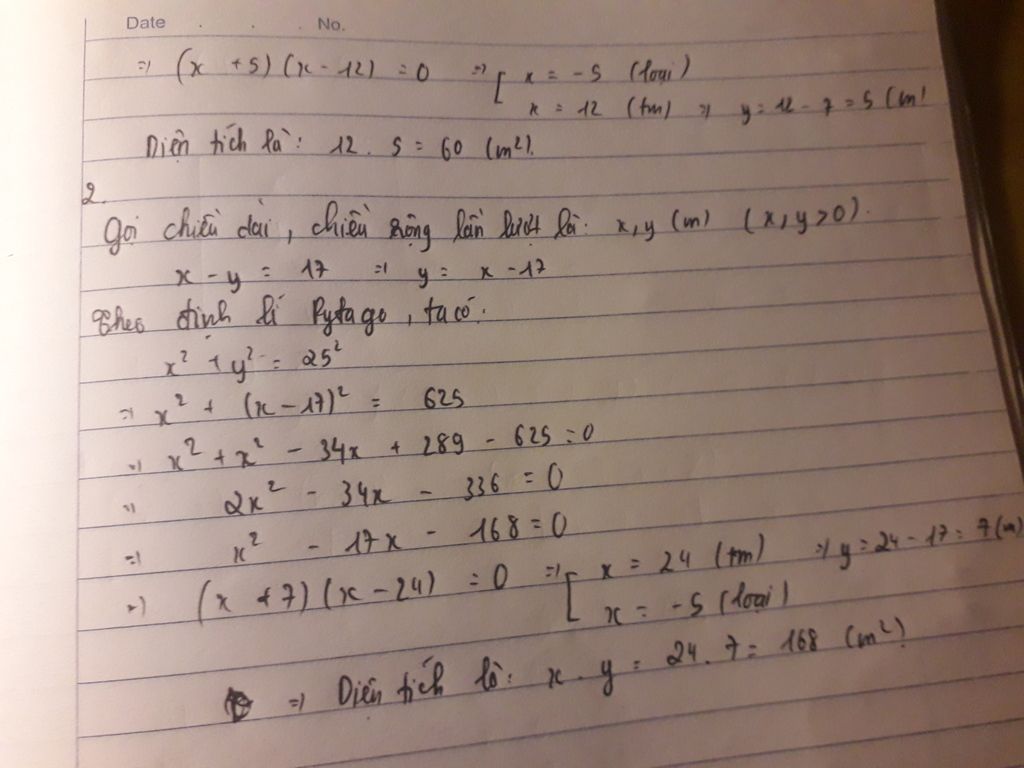 Date . . . No.
=) (x + 5) (x - 12) = 0 =) [ x = -5 (loại)
x = 12 (tm) =) y = 12 - 7 = 5 (m)
Diện tích là: 12 . 5 = 60 (m²).
2.
Gọi chiều dài, chiều rộng lần lượt là: x, y (m) (x, y > 0).
x - y = 17 =) y = x - 17
Theo định lí Pytago, ta có:
x² + y² = 25²
=) x² + (x - 17)² = 625
=) x² + x² - 34x + 289 - 625 = 0
=) 2x² - 34x - 336 = 0
=) x² - 17x - 168 = 0
=) (x + 7) (x - 24) = 0 =) [ x = 24 (tm) =) y = 24 - 17 = 7 (m)
x = -5 (loại)
=) Diện tích là: x . y = 24 . 7 = 168 (m²)